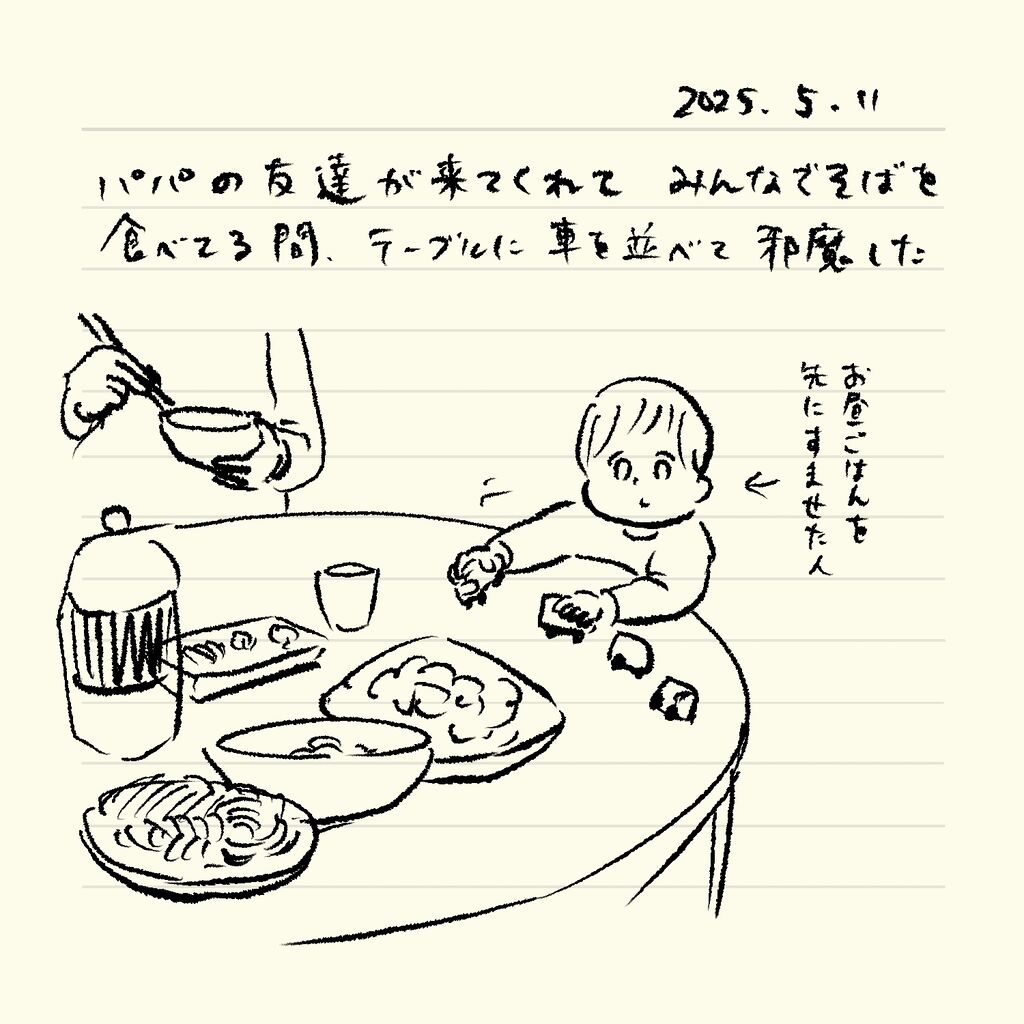 2025. 5. 11
パパの友達が来てくれて みんなでそばを
食べてる間、テーブルに 車を並べて 邪魔した
お昼ごはんを
先にすませた人